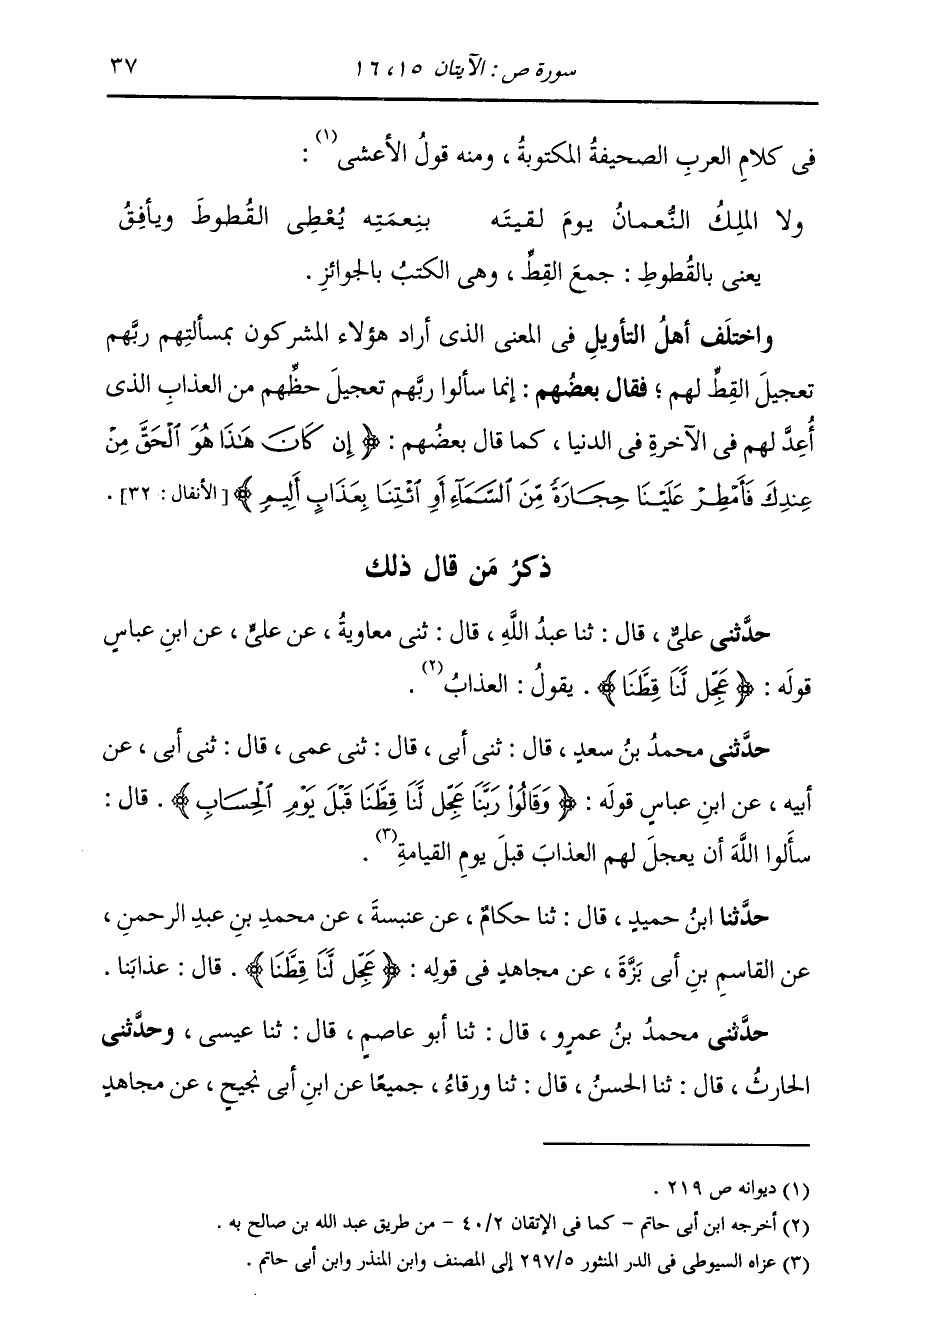 سورة ص : الآيتان ١٥، ١٦ ٣٧
فى كلامِ العربِ الصحيفةُ المكتوبةُ ، ومنه قولُ الأعشى(١) :
ولا الملِكُ النُّعمانُ يومَ لقيتَه بنِعمَتِه يُعْطِى القُطوطَ ويأفِقُ
يعنى بالقُطوطِ : جمعَ القِطِّ ، وهى الكتبُ بالجوائزِ .
واختلَف أهلُ التأويلِ فى المعنى الذى أراد هؤلاء المشركون بمسألتِهم ربَّهم
تعجيلَ القِطِّ لهم ؛ فقال بعضُهم : إنما سألوا ربَّهم تعجيلَ حظِّهم من العذابِ الذى
أُعِدَّ لهم فى الآخرةِ فى الدنيا ، كما قال بعضُهم : ﴿ إِن كَانَ هَٰذَا هُوَ ٱلْحَقَّ مِنْ
عِندِكَ فَأَمْطِرْ عَلَيْنَا حِجَارَةً مِّنَ ٱلسَّمَآءِ أَوِ ٱئْتِنَا بِعَذَابٍ أَلِيمٍ ﴾ [الأنفال : ٣٢] .
ذكرُ مَن قال ذلك
حدَّثنى علىٌّ ، قال : ثنا عبدُ اللَّهِ ، قال : ثنى معاويةُ ، عن علىٍّ ، عن ابنِ عباسٍ
قولَه : ﴿ عَجِّل لَّنَا قِطَّنَا ﴾ . يقولُ : العذابُ(٢) .
حدَّثنى محمدُ بنُ سعدٍ ، قال : ثنى أبى ، قال : ثنى عمى ، قال : ثنى أبى ، عن
أبيه ، عن ابنِ عباسٍ قولَه : ﴿ وَقَالُوا۟ رَبَّنَا عَجِّل لَّنَا قِطَّنَا قَبْلَ يَوْمِ ٱلْحِسَابِ ﴾ . قال :
سأَلوا اللَّهَ أن يعجلَ لهم العذابَ قبلَ يومِ القيامةِ(٣) .
حدَّثنا ابنُ حميدٍ ، قال : ثنا حكامٌ ، عن عنبسةَ ، عن محمدِ بنِ عبدِ الرحمنِ ،
عن القاسمِ بنِ أبى بَزَّةَ ، عن مجاهدٍ فى قولِه : ﴿ عَجِّل لَّنَا قِطَّنَا ﴾ . قال : عذابَنا .
حدَّثنى محمدُ بنُ عمرٍو ، قال : ثنا أبو عاصمٍ ، قال : ثنا عيسى ، وحدَّثنى
الحارثُ ، قال : ثنا الحسنُ ، قال : ثنا ورقاءُ ، جميعًا عن ابنِ أبى نجيحٍ ، عن مجاهدٍ
(١) ديوانه ص ٢١٩ .
(٢) أخرجه ابن أبى حاتم - كما فى الإتقان ٤٠/٢ - من طريق عبد الله بن صالح به .
(٣) عزاه السيوطى فى الدر المنثور ٢٩٧/٥ إلى المصنف وابن المنذر وابن أبى حاتم .